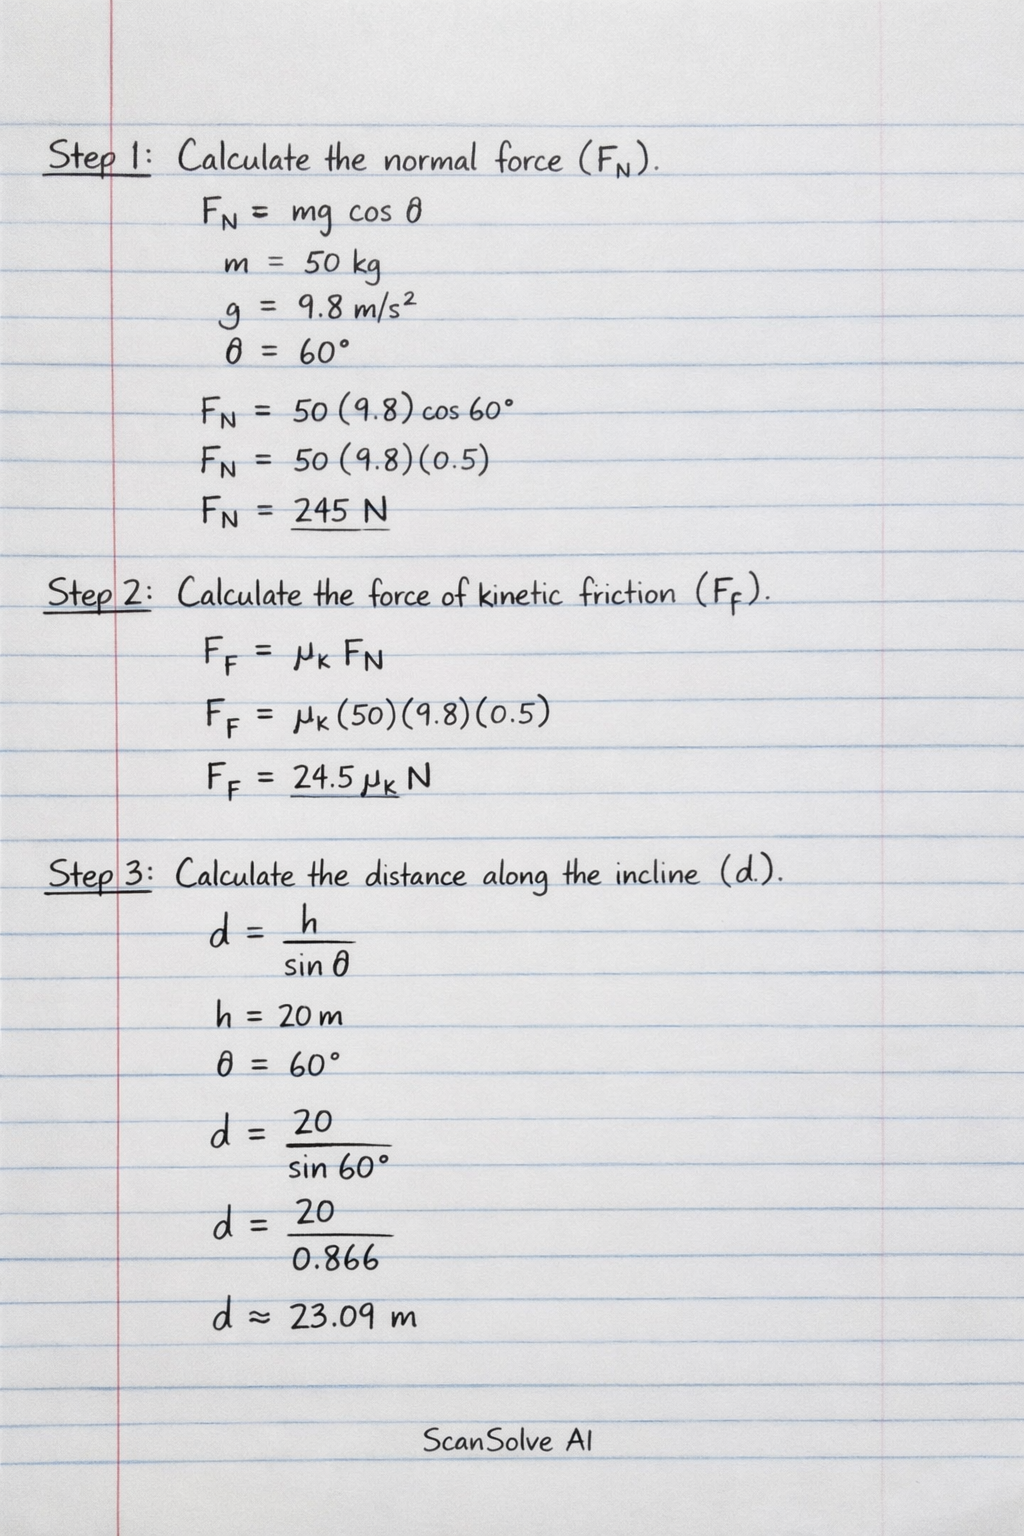 Step 1: Calculate the normal force (F_N).
F_N = mg cos θ
m = 50 kg
g = 9.8 m/s²
θ = 60°
F_N = 50 (9.8) cos 60°
F_N = 50 (9.8)(0.5)
F_N = 245 N
Step 2: Calculate the force of kinetic friction (F_F).
F_F = μ_K F_N
F_F = μ_K (50)(9.8)(0.5)
F_F = 24.5 μ_K N
Step 3: Calculate the distance along the incline (d.).
d = h
sin θ
h = 20 m
θ = 60°
d = 20
sin 60°
d = 20
0.866
d ≈ 23.09 m
ScanSolve AI